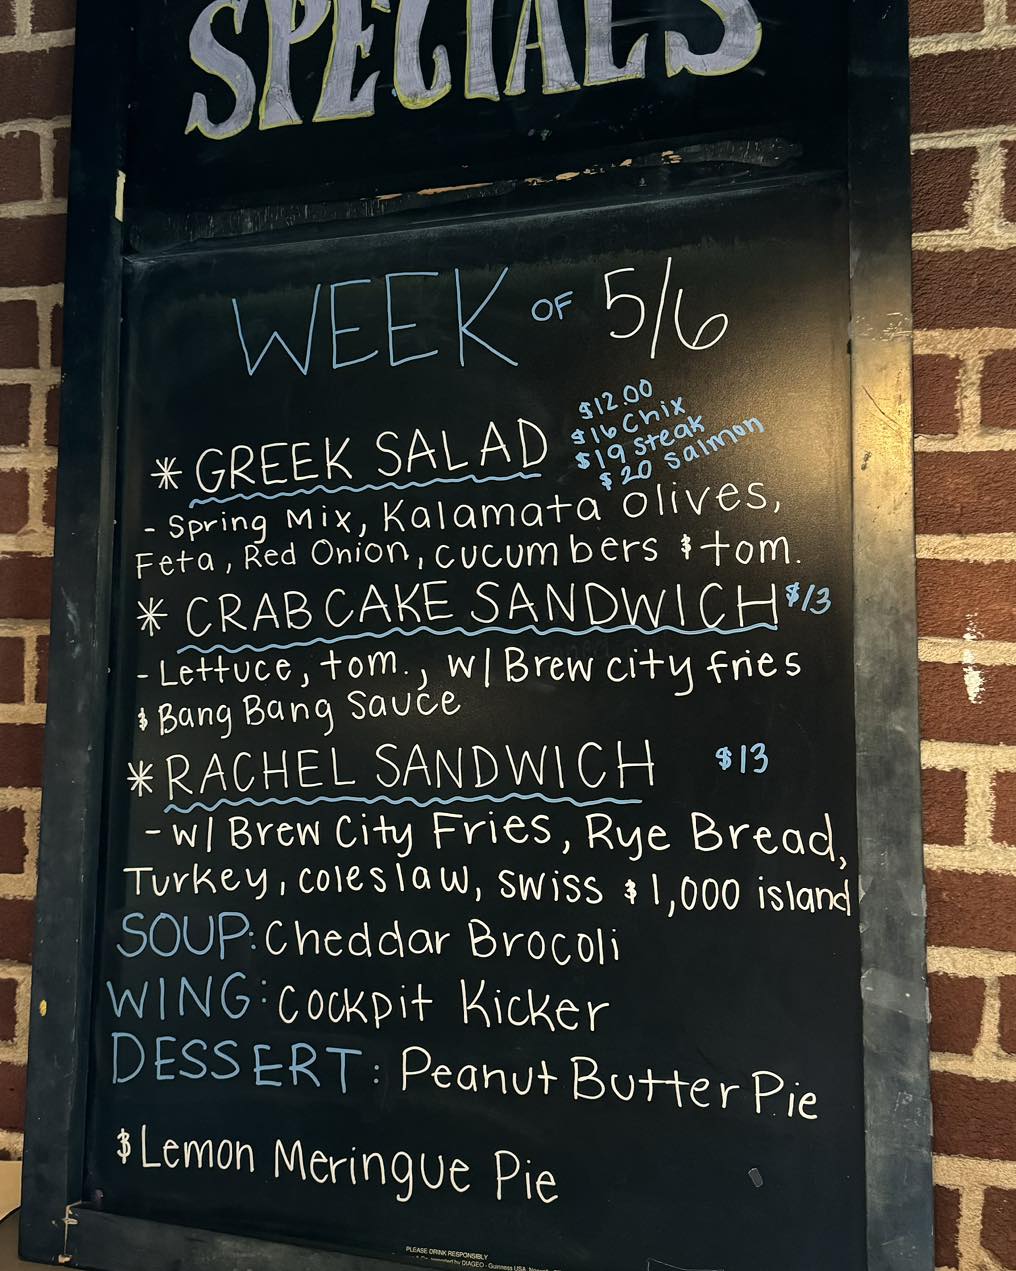 SPECIALS
WEEK OF 5/6
$12.00
$16 Chix
$19 steak
$20 salmon
* GREEK SALAD
- Spring Mix, Kalamata olives,
Feta, Red Onion, cucumbers & tom.
* CRABCAKE SANDWICH $13
- Lettuce, tom., w/ Brew city fries
& Bang Bang Sauce
* RACHEL SANDWICH $13
- w/ Brew City Fries, Rye Bread,
Turkey, coleslaw, swiss & 1,000 island
SOUP: Cheddar Brocoli
WING: Cockpit Kicker
DESSERT: Peanut Butter Pie
& Lemon Meringue Pie
PLEASE DRINK RESPONSIBLY
by DIAGEO - Guinness USA,